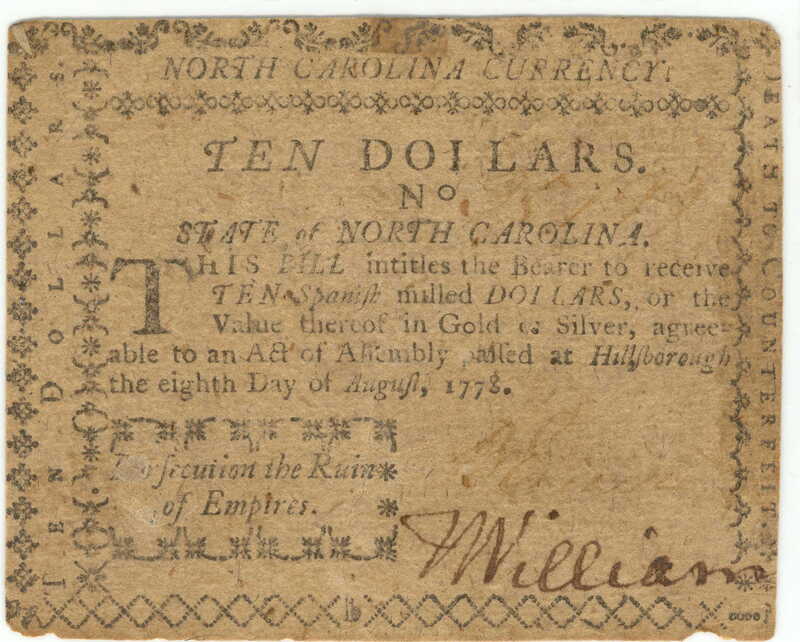 NORTH CAROLINA CURRENCY.
TEN DOLLARS.
No
STATE of NORTH CAROLINA.
THIS BILL intitles the Bearer to receive
TEN Spanish milled DOLLARS, or the
Value thereof in Gold or Silver, agree-
able to an Act of Assembly passed at Hillsborough
the eighth Day of August, 1778.
Persecution the Ruin
of Empires.
William
TEN DOLLARS.
DEATH TO COUNTERFEIT.